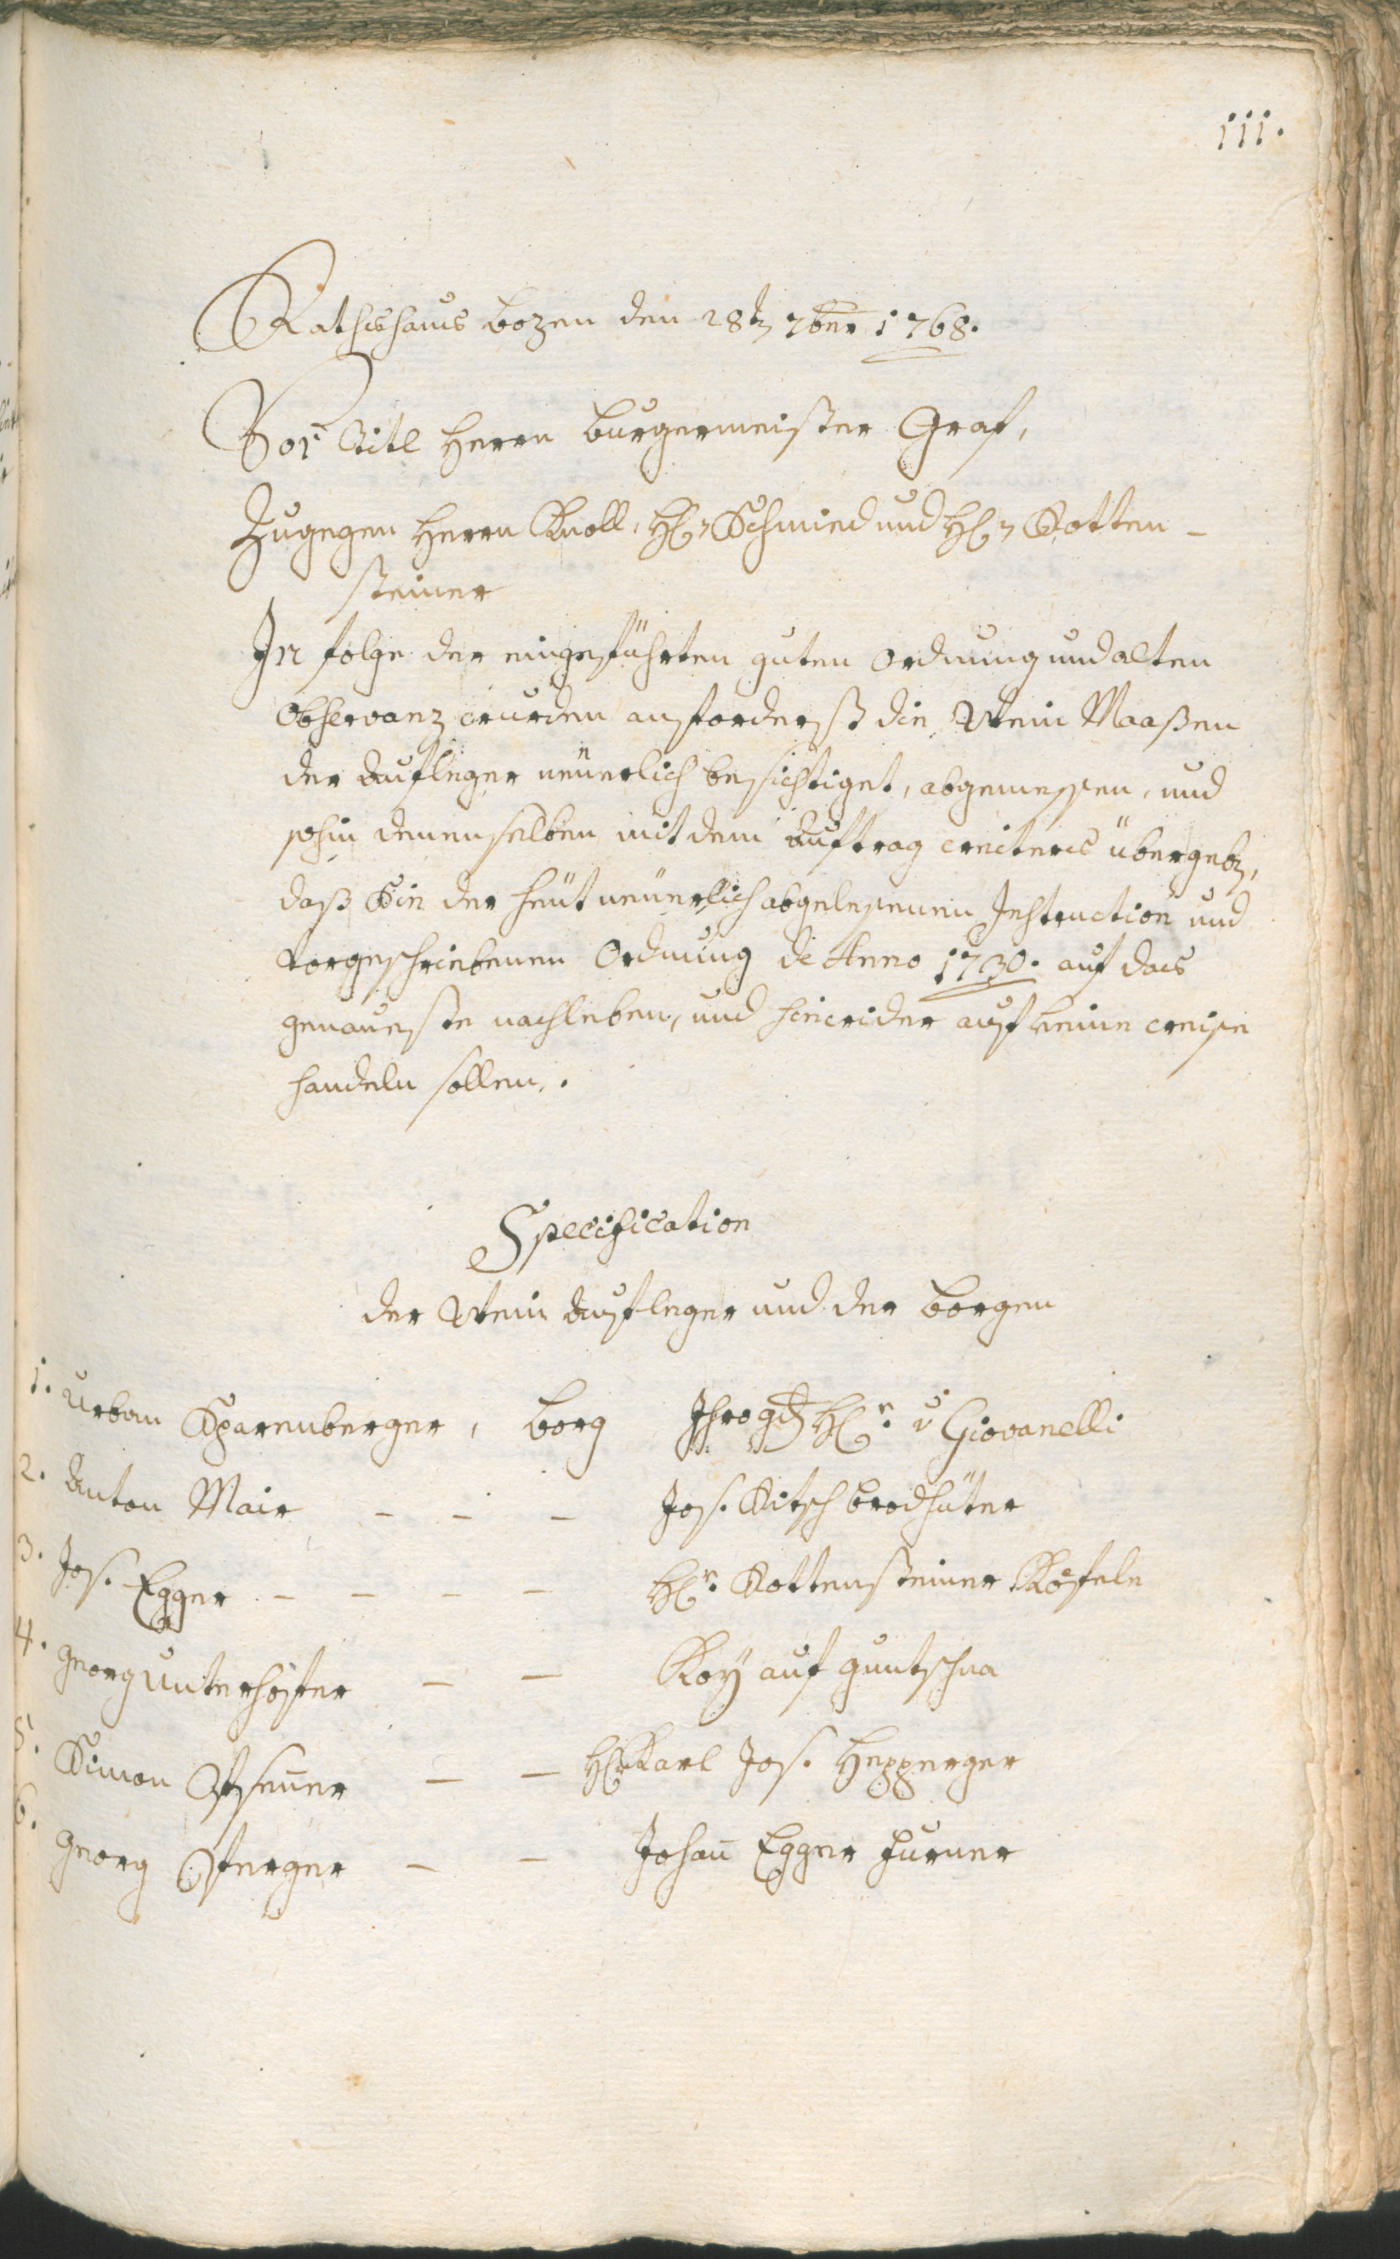 111.
Rathshaus Bozen den 28t 7ber 1768.
Vor Titl Herrn Burgermeister Graf,
Zugegen Herrn Knoll, H: Schmied und H: Rotten-
steiner
In folge der eingeführten guten Ordnung und alten
Observanz wurden anforderst die Wein Maaßen
der Aufleger neuerlich besichtiget, abgemessen, und
sohin denenselben mit dem Auftrag weiters übergeben,
daß Sie der heut neuerlich abgelesenen Instruction und
vorgeschriebenen Ordnung de Anno 1730. auf das
genaueste nachleben, und hiewider auf keine weise
handeln sollen.
Specification
der Wein Aufleger und der Borgen
1. Urban Sparnberger, Borg Ihro gd Hr. v Giovanelli
2. Anton Mair - - - Jos. Kitsch Brodhüter
3. Jos. Egger - - - - Hr. Rottensteiner Kofele
4. Georg Unterhofer - - Roy auf guntschna
5. Simon - - Hr Karl Jos. Hepperger
6. Georg - - Johan̄ Egger Furner